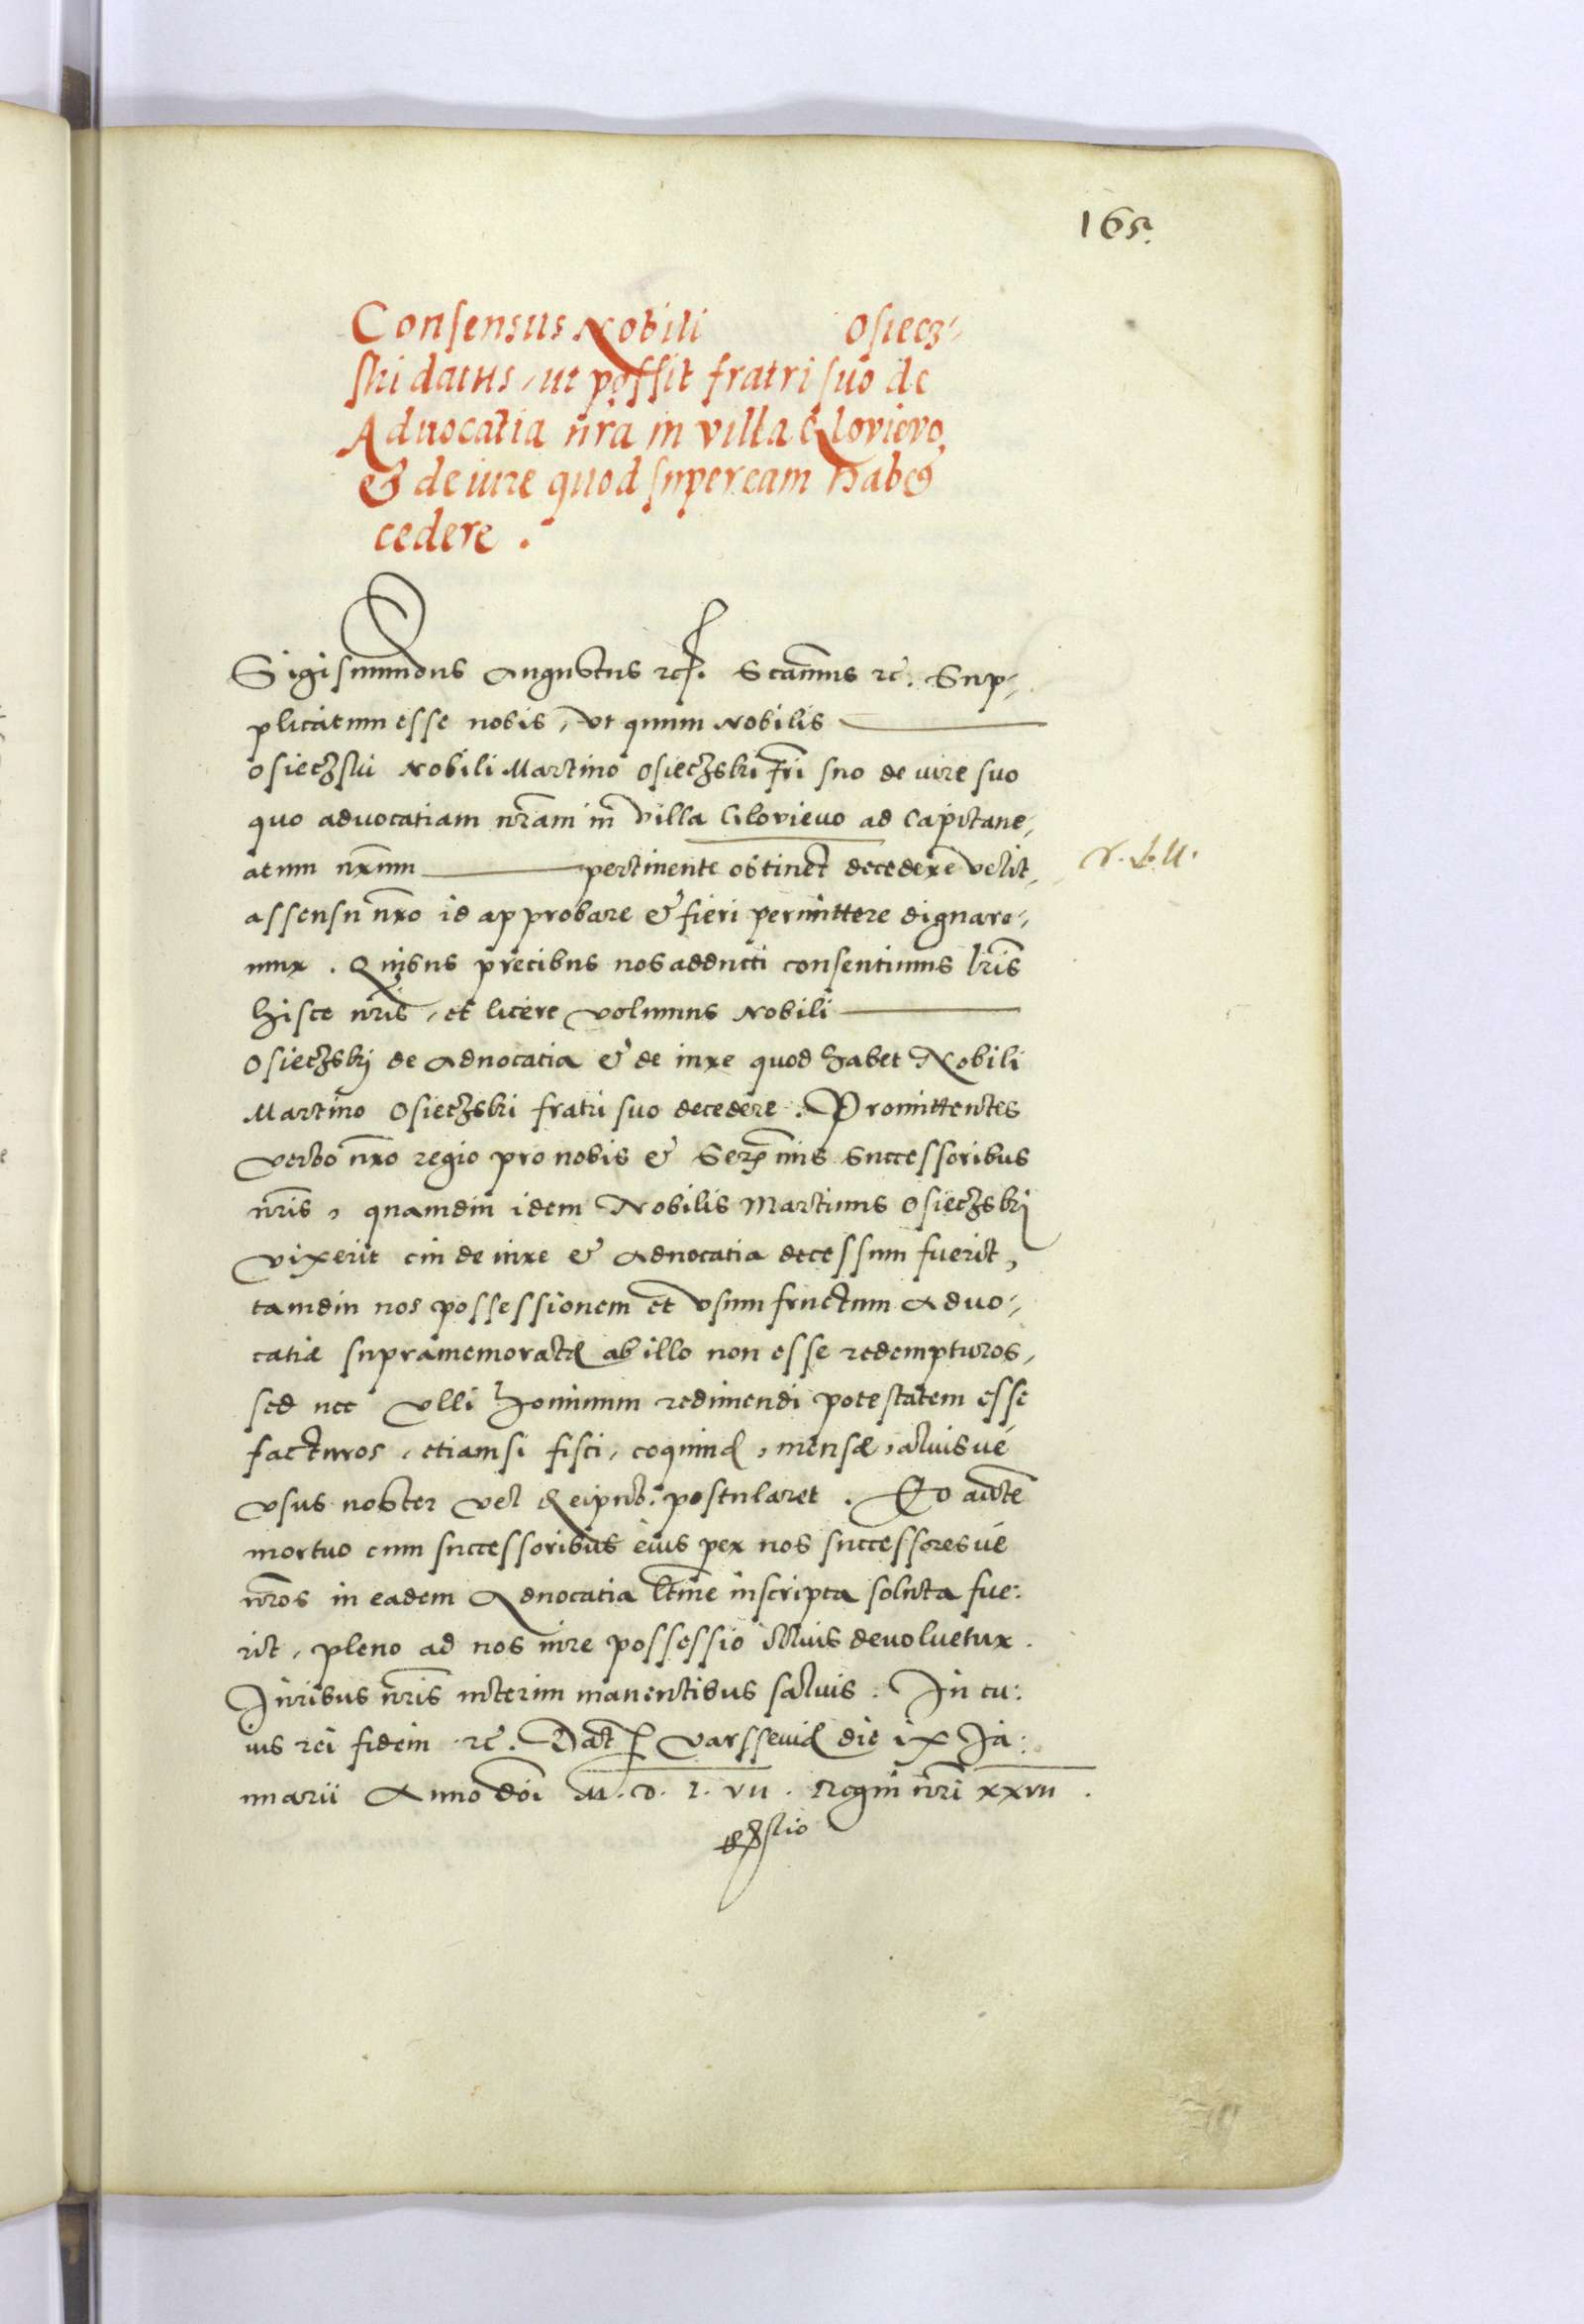 165.
Consensus Nobili Osiecz-
ski datus, ut possit fratri suo de
Aduocatia nra in villa Glovievo,
& de iure quod super eam habet
cedere.
Sigismundus Augustus rc. Scamus rc. Sup-
plicatum esse nobis, vt quum Nobilis
Osieczski Nobili Martino Osieczski fri suo de iure suo
quo advocatiam nram in villa Glovievo ad Capitane-
atum nrum pertinente obtinet decedere velit,
assensu nro id approbare & fieri permittere dignare-
mur. Quibus precibus nos adducti consentimus lris
hisce nris, et licere volumus Nobili
Osieczskj de Aduocatia & de iure quod habet Nobili
Martino Osieczski fratri suo decedere. Promittentes
verbo nro regio pro nobis & Sermis Successoribus
nris, quamdiu idem Nobilis Martinus Osieczskj
vixerit cui de iure & Aduocatia decessum fuerit,
tamdiu nos possessionem et vsum fructum Aduo-
catiæ supramemoratę ab illo non esse redempturos,
sed nec vlli hominum redimendi potestatem esse
facturos, etiamsi fisci, coquinę, mensæ, aliusue
vsus noster vel Reipub. postularet. Eo aute
mortuo cum successoribus eius per nos successoresue
nros in eadem Aduocatia ltme inscripta soluta fue:
rit, pleno ad nos iure possessio illius deuoluetur.
Juribus nris interim manentibus saluis. In cu:
ius rei fidem rc. Dat Varsseuię die ix Ja:
nuarii Anno doi M.D.L.VII. Regni nri XXVII.